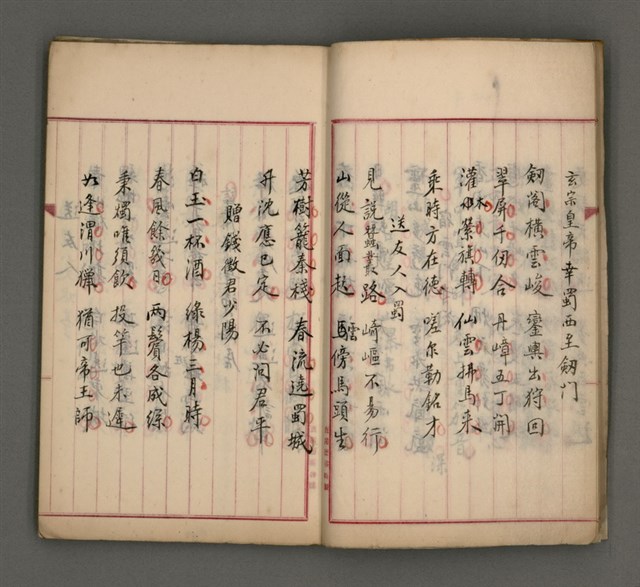 玄宗皇帝幸蜀西至劔门
劔阁橫雲峻 鑾輿出狩回
翠屏千仞合 丹嶂五丁開
灌木縈旗轉 仙雲拂馬来
乘時方在德 嗟尔勒銘才
送友人入蜀
見說蠶叢路 崎嶇不易行
山從人面起 雲傍馬頭生
芳樹籠秦棧 春流遶蜀城
升沈應已定 不必问君平
贈錢徵君少陽
白玉一杯酒 綠楊三月時
春风餘幾日 两鬢各成絲
秉燭唯須飲 投竿也未遲
如逢渭川獵 猶可帝王師